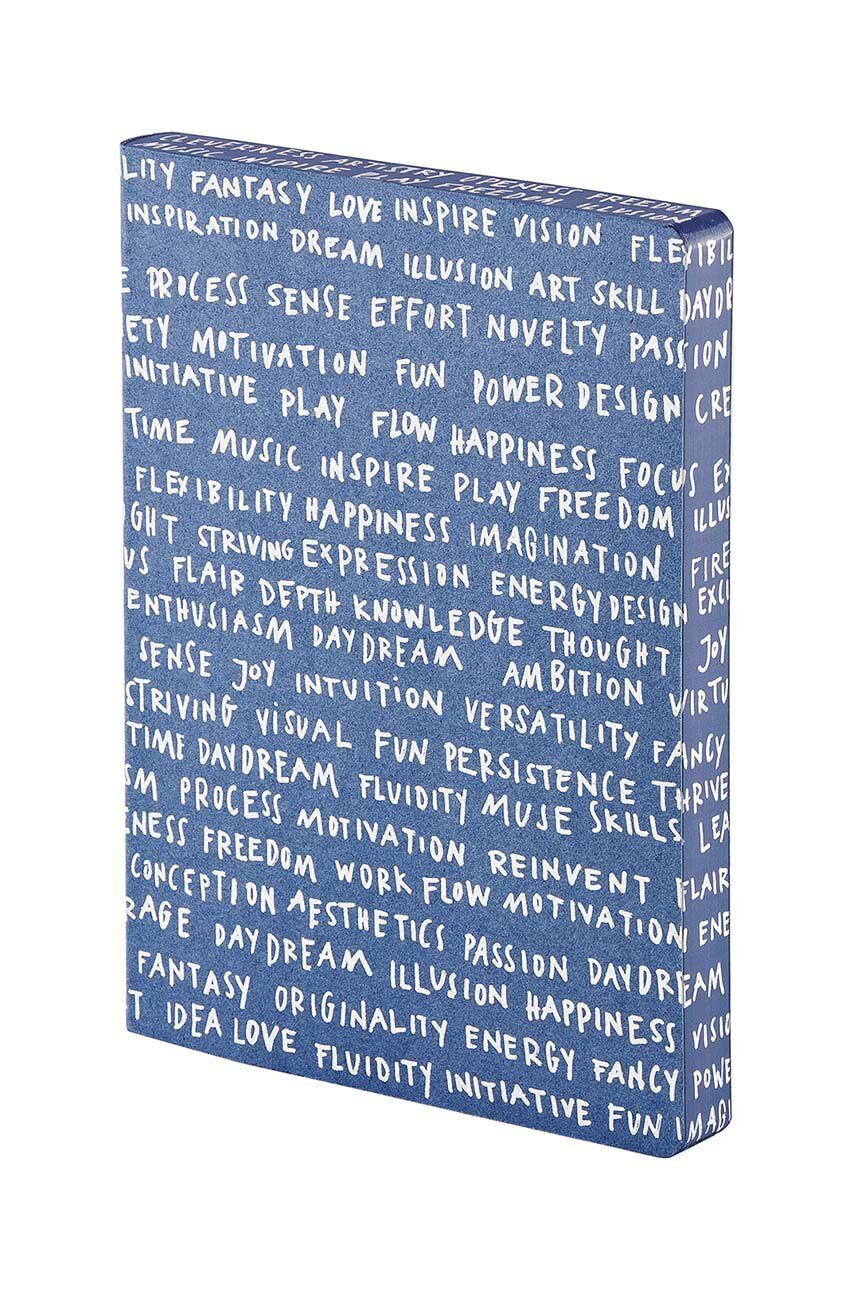 CLEVERNESS ARTISTRY OPENESS FREEDOM
MUSIC INSPIRE PLAY FREEDOM ILLUSION
LITY FANTASY LOVE INSPIRE VISION FLEXIBIL
INSPIRATION DREAM ILLUSION ART SKILL DAYDR
E PROCESS SENSE EFFORT NOVELTY PASSION
ETY MOTIVATION FUN POWER DESIGN CRE
INITIATIVE PLAY FLOW HAPPINESS FOCUS EX
TIME MUSIC INSPIRE PLAY FREEDOM ILLUS
FLEXIBILITY HAPPINESS IMAGINATION FIRE
GHT STRIVING EXPRESSION ENERGY DESIGN EXCI
US FLAIR DEPTH KNOWLEDGE THOUGHT JOY
ENTHUSIASM DAYDREAM AMBITION VIRTU
SENSE JOY INTUITION VERSATILITY FANCY
STRIVING VISUAL FUN PERSISTENCE THRIVE
TIME DAYDREAM FLUIDITY MUSE SKILLS LEA
SM PROCESS MOTIVATION REINVENT FLAIR
ENESS FREEDOM WORK FLOW MOTIVATION ENE
CONCEPTION AESTHETICS PASSION DAYDREAM
RAGE DAYDREAM ILLUSION HAPPINESS VISIO
FANTASY ORIGINALITY ENERGY FANCY POWE
T IDEA LOVE FLUIDITY INITIATIVE FUN IMAGI